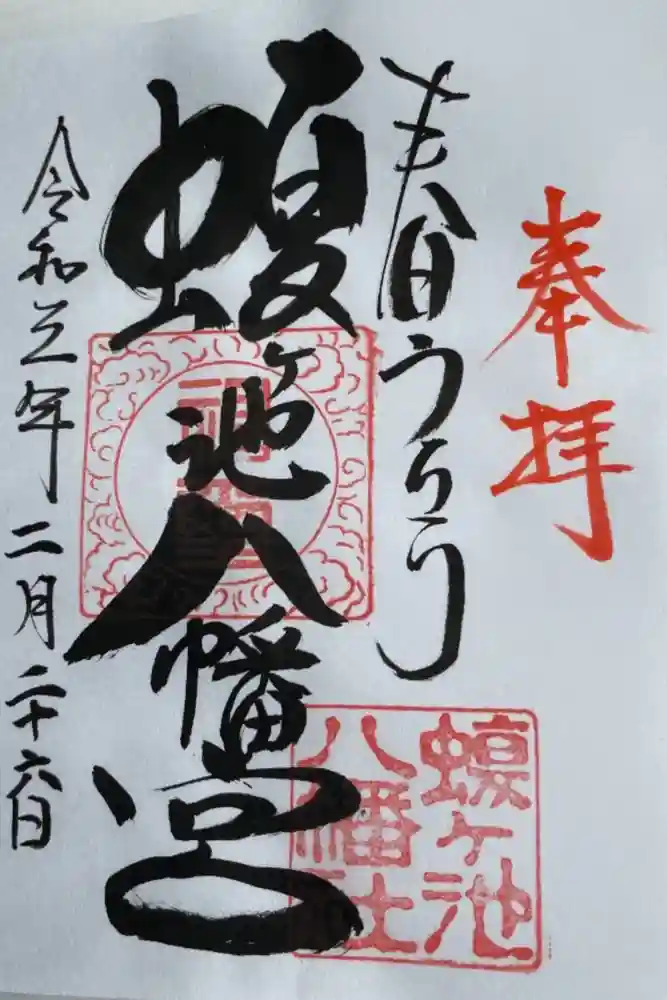 奉拝
春うらら
蝮ヶ池八幡宮
令和三年二月二十六日
蝮ヶ池
八幡社